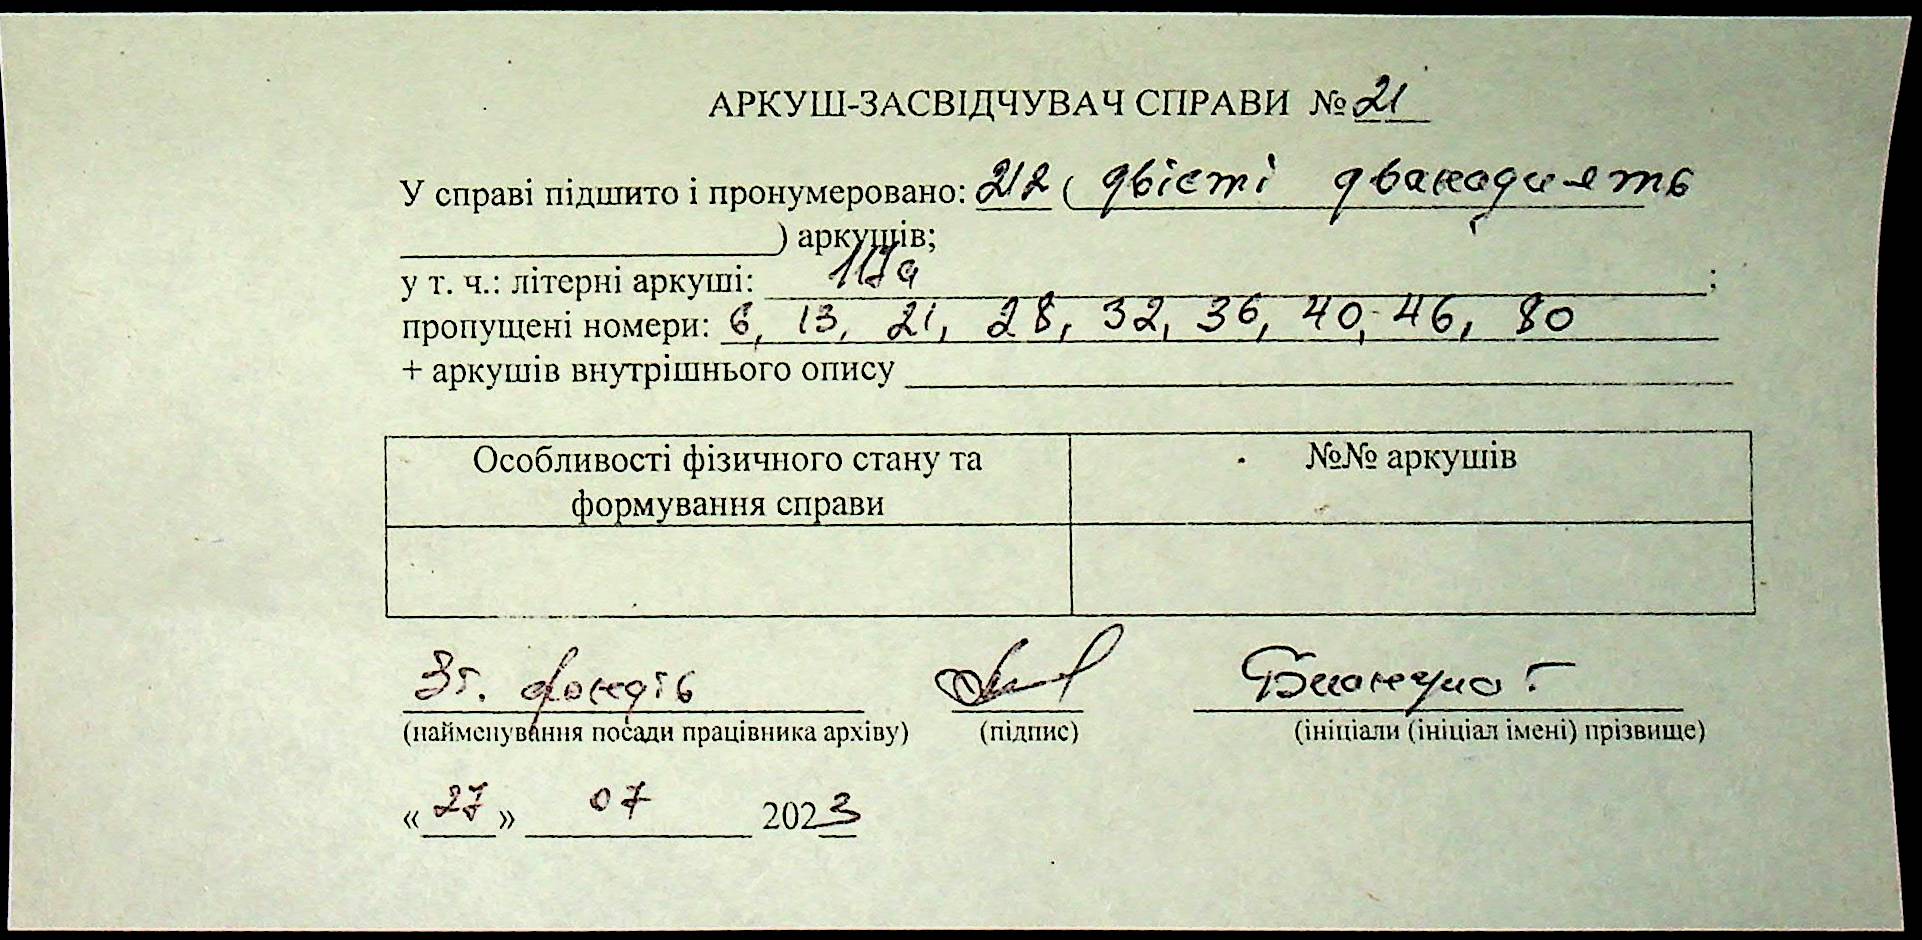 АРКУШ-ЗАСВІДЧУВАЧ СПРАВИ № 21
У справі підшито і пронумеровано: 212 ( двісті дванадцять
) аркушів;
у т. ч.: літерні аркуші: ;
пропущені номери: 6, 13, 21, 28, 32, 36, 40, 46, 80
+ аркушів внутрішнього опису
Особливості фізичного стану та
формування справи
№№ аркушів
Зг. фондів
(найменування посади працівника архіву) (підпис) (ініціали (ініціал імені) прізвище)
«27» 07 2023